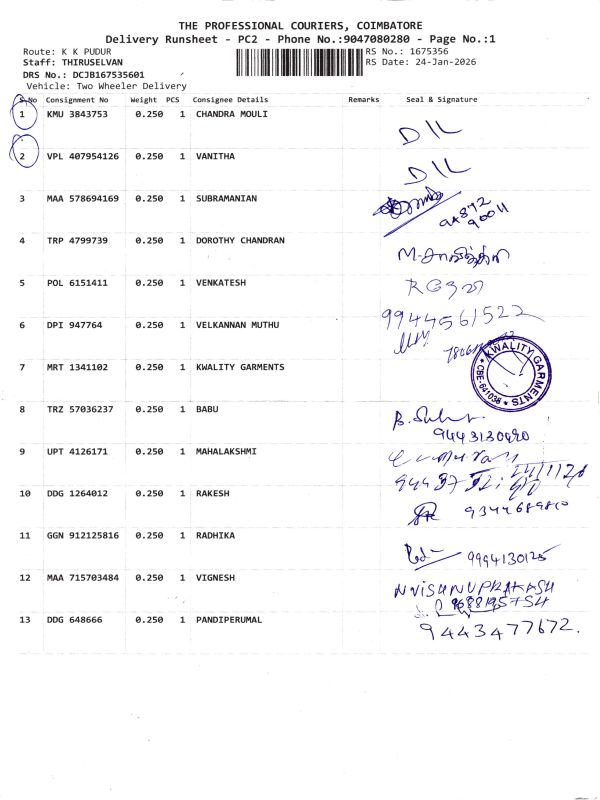 THE PROFESSIONAL COURIERS, COIMBATORE
Delivery Runsheet - PC2 - Phone No.:9047080280 - Page No.:1
Route: K K PUDUR RS No.: 1675356
Staff: THIRUSELVAN RS Date: 24-Jan-2026
DRS No.: DCJB167535601
Vehicle: Two Wheeler Delivery
S.No Consignment No Weight PCS Consignee Details Remarks Seal & Signature
1 KMU 3843753 0.250 1 CHANDRA MOULI
DIL
2 VPL 407954126 0.250 1 VANITHA
DIL
3 MAA 578694169 0.250 1 SUBRAMANIAN
90011
4 TRP 4799739 0.250 1 DOROTHY CHANDRAN
5 POL 6151411 0.250 1 VENKATESH
9944561522
6 DPI 947764 0.250 1 VELKANNAN MUTHU
7 MRT 1341102 0.250 1 KWALITY GARMENTS
KWALITY GARMENTS
CBE-641038
8 TRZ 57036237 0.250 1 BABU
9443130490
9 UPT 4126171 0.250 1 MAHALAKSHMI
10 DDG 1264012 0.250 1 RAKESH
9344689810
11 GGN 912125816 0.250 1 RADHIKA
9994130125
12 MAA 715703484 0.250 1 VIGNESH
N VISHNUPRAKASH
13 DDG 648666 0.250 1 PANDIPERUMAL
9443477672.